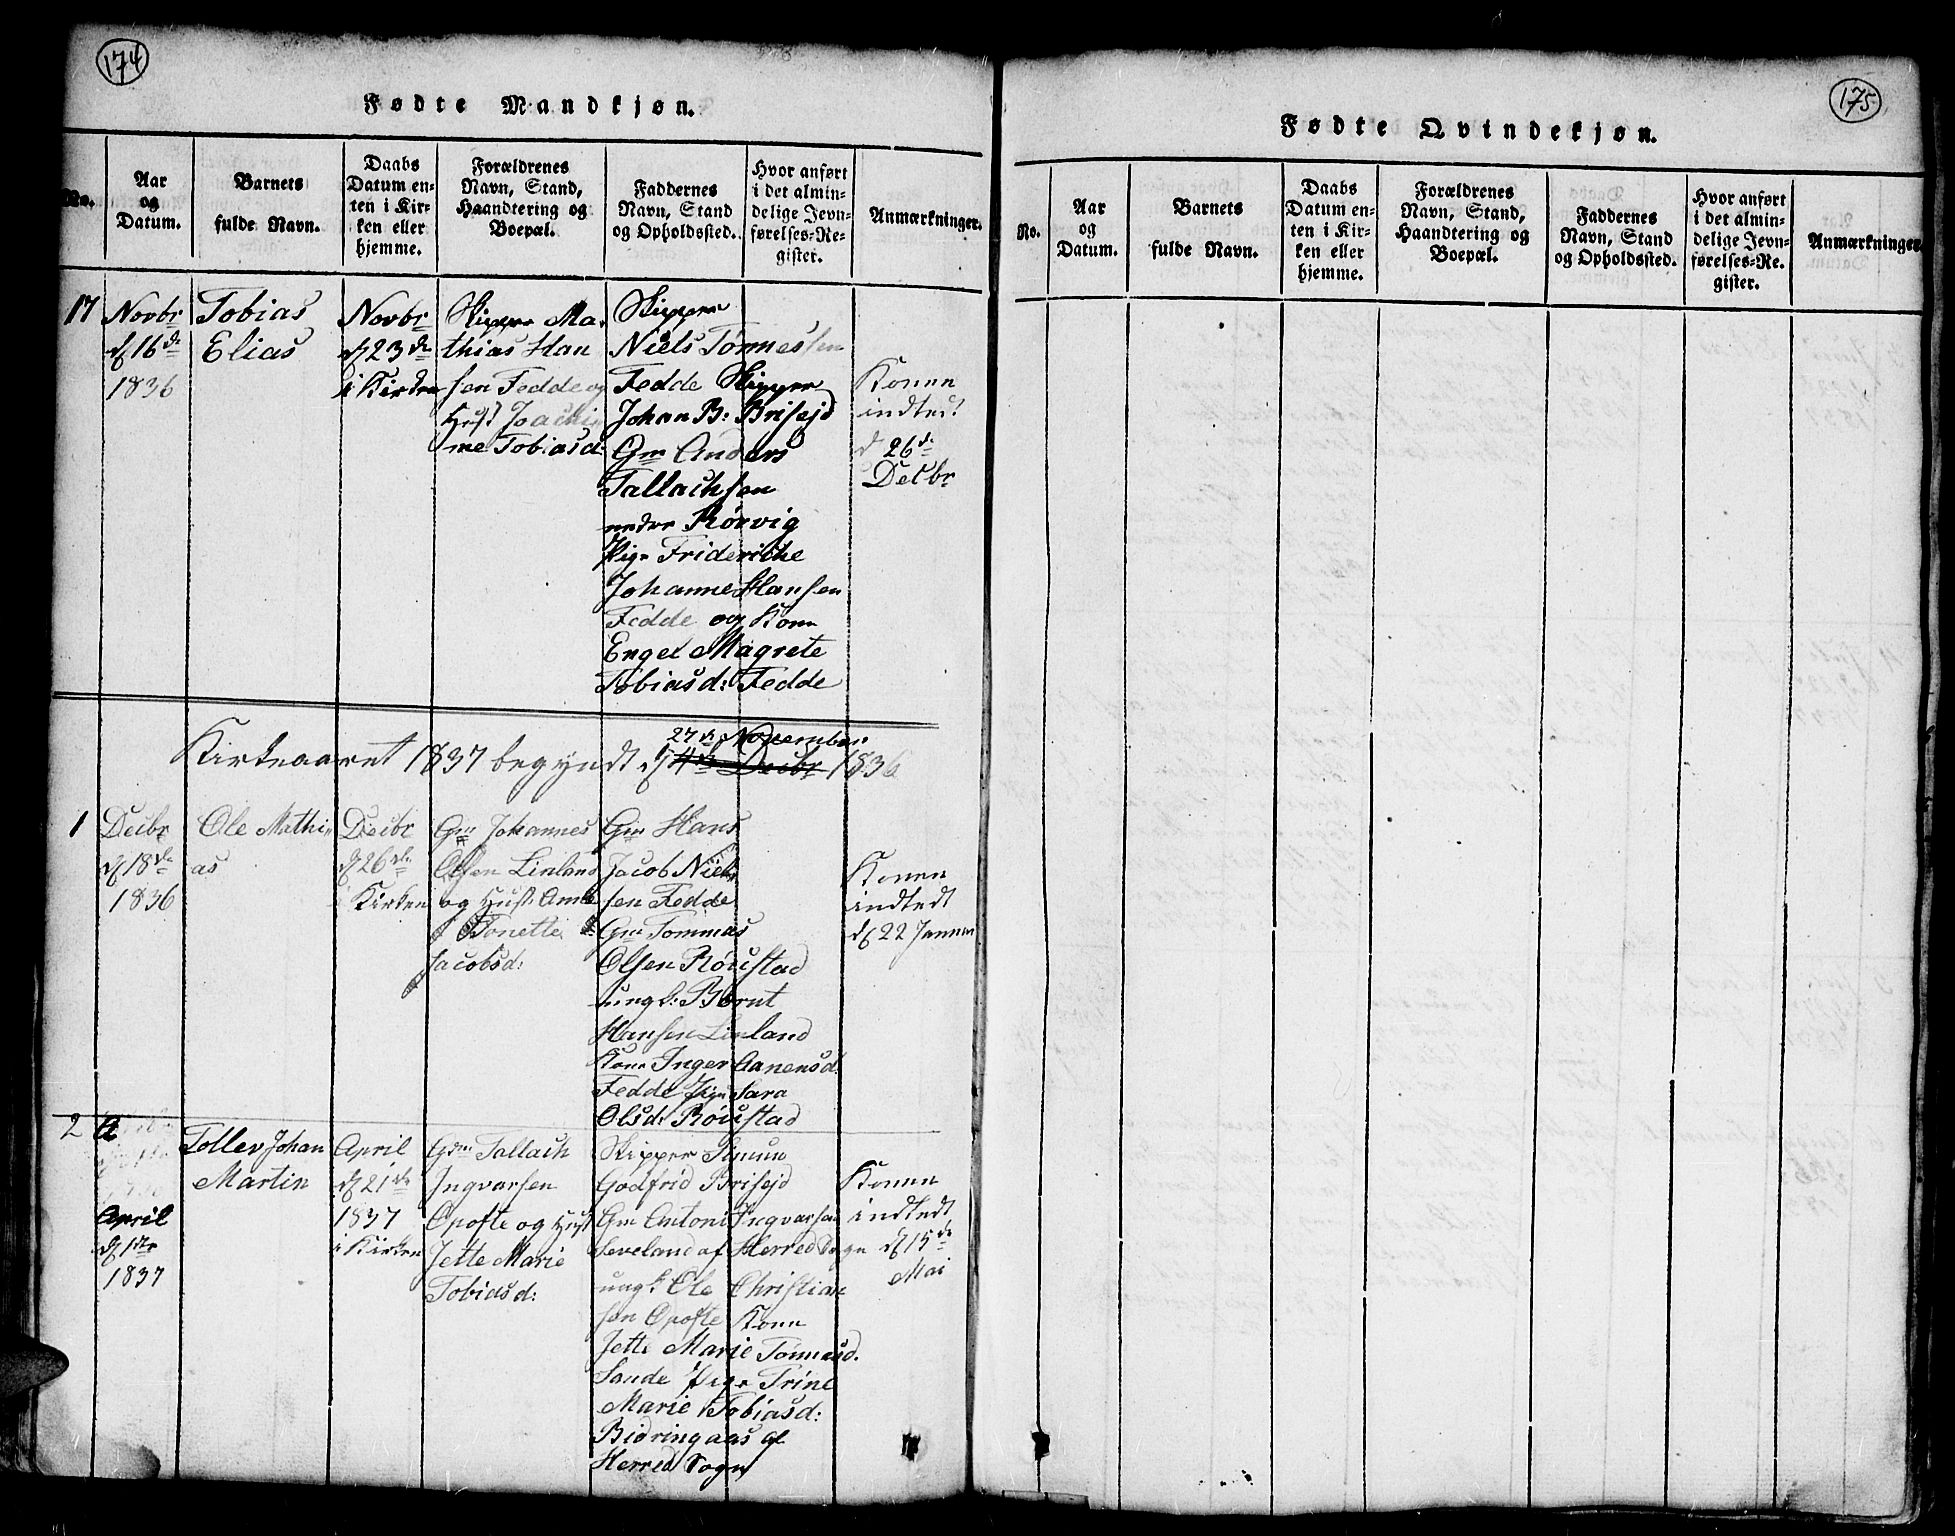 174
Fødte Mandkjøn.
No.
Aar
og
Datum.
Barnets
fulde Navn.
Daabs
Datum en-
ten i Kir-
ken eller
hjemme.
Forældrenes
Navn, Stand,
Haandtering og
Boepæl.
Faddernes
Navn, Stand
og Opholdssted.
Hvor anført
i det almin-
delige Jevn-
førelses-Re-
gister.
Anmærkninger.
17
Novbr
d 16de
1836
Tobias
Elias
Novbr
d 23de
i Kirken
Skipper Ma-
thias Han
sen Fedde og
Hust Joachi
me Tobiasd:
Skipper
Niels Tønnessen
Fedde Skipper
Johan B: Briseid
Gm Anders
Tallachsen
nedre Rørvig
Pige Friderikke
Johanne Hansen
Fedde og Kone
Engel Magrete
Tobiasd: Fedde
Konen
indted
d 26de
Decbr
Kirkeaaret 1837 begyndt d 4de Decbr 1836
27de November
1
Decbr
d 18de
1836
Ole Mathi
as
Decbr
d 26de
i Kirken
Gm Johannes
Olsen Linland
og Hust: Anne
Tonette
Jacobsd:
Gm Hans
Jacob Niel
sen Fedde
Gm Tommas
Olsen Røiestad
ungk: Bernt
Hansen Linland
Kone Inger Aanensd:
Fedde Pige Sara
Olsd: Røiestad
Konen
indtedt
d 22 Januar
2
A
April
d 1ste
1837
Tollev Johan
Martin
April
d 21de
1837
i Kirken
Gdm Tallach
Ingvarsen
Opofte og Hust
Jette Marie
Tobiasd:
Skipper Simun
Godfrid Briseid
Gm Antoni Ingvarsen
Leveland af Herred Sogn
ungk Ole Christian
sen Opofte Kone
Jette Marie Tønnesd.
Sande Pige Trine
Marie Tobiasd:
Bidringaas af
Herred Sogn
Konen
indtedt
d 15de
Mai
175
Fødte Qvindekjøn.
No.
Aar
og
Datum.
Barnets
fulde Navn.
Daabs
Datum en-
ten i Kir-
ken eller
hjemme.
Forældrenes
Navn, Stand,
Haandtering og
Boepæl.
Faddernes
Navn, Stand
og Opholdssted.
Hvor anført
i det almin-
delige Jevn-
førelses-Re-
gister.
Anmærkninger